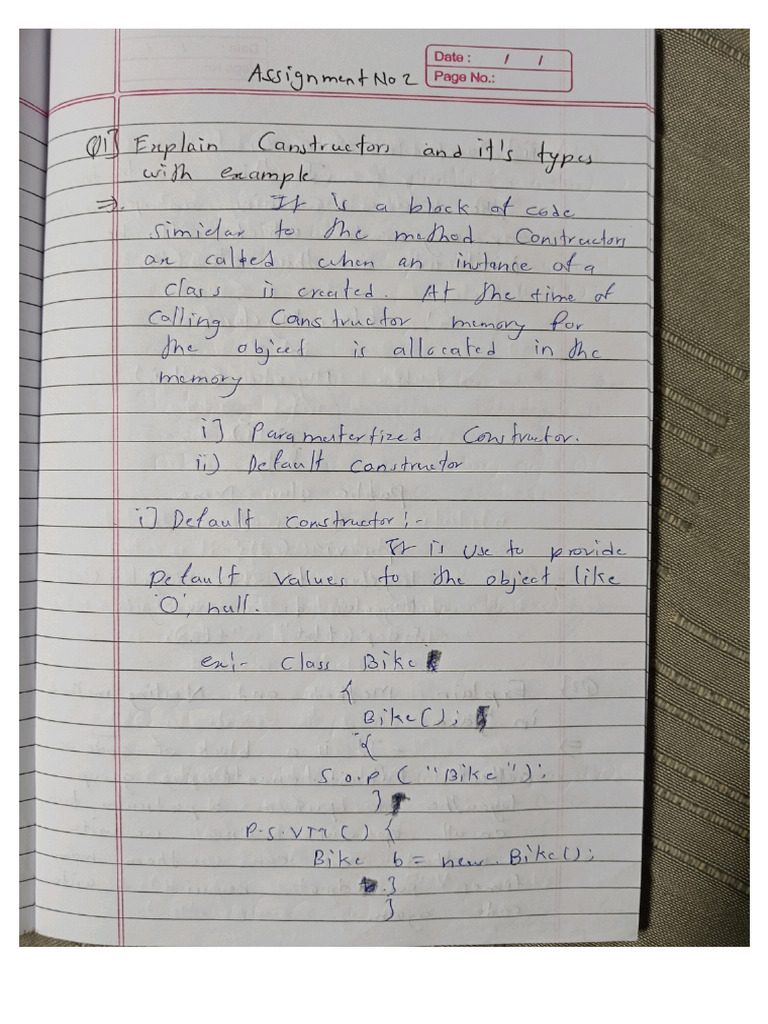 Assignment No 2
Date : / /
Page No.:
Q1] Explain Constructors and it's types
with example
⇒. It is a block of code
similar to the method. Constructors
are called when an instance of a
class is created. At the time of
calling Constructor memory for
the object is allocated in the
memory
i] Paramerterfized Constructor.
ii) Default constructor
i] Default constructor :-
It is use to provide
Default values to the object like
'0', null.
ex:- Class Bike
{
Bike();
{
S.o.p ( "Bike");
}
P.S.V m ( ) {
Bike b = new Bike();
}
}